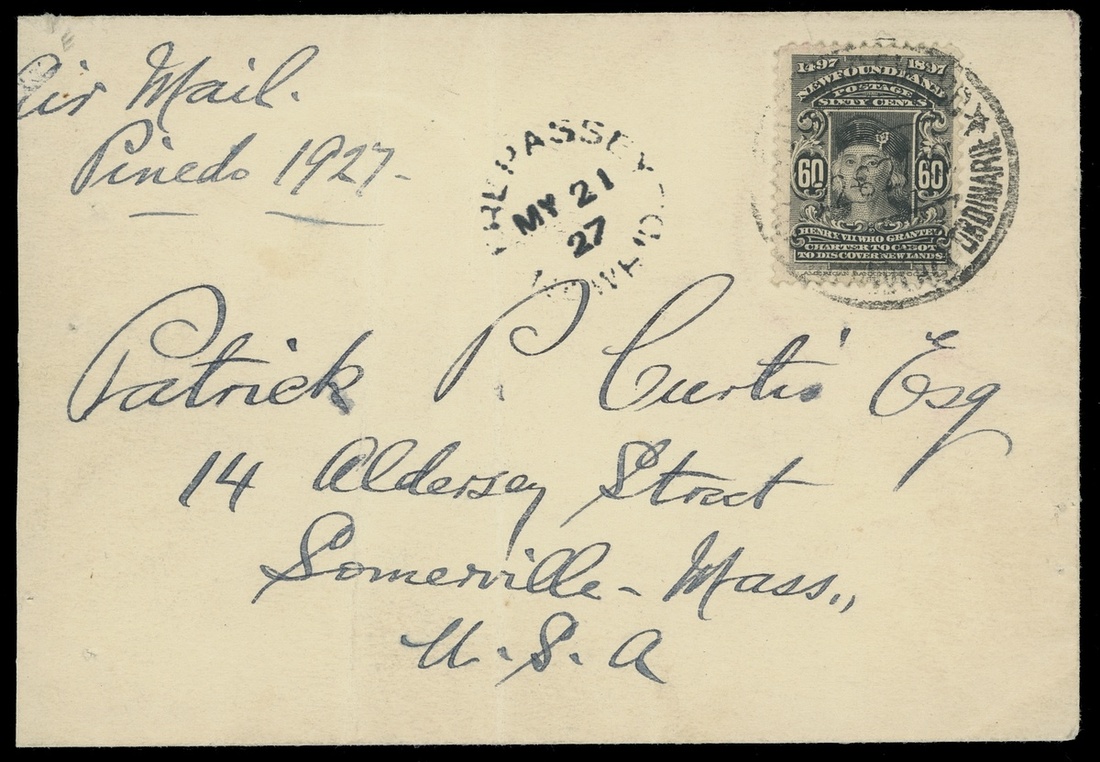 Air Mail.
Pinedo 1927-
TREPASSEY
MY 21
27
NEWF'D
1497 1897
NEWFOUNDLAND
POSTAGE
SIXTY CENTS
60 60
HENRY VII WHO GRANTED
CHARTER TO CABOT
TO DISCOVER NEW LANDS
ORDINARIE
Patrick P Curtis Esq
14 Aldersey Street
Somerville - Mass.,
U.S.A